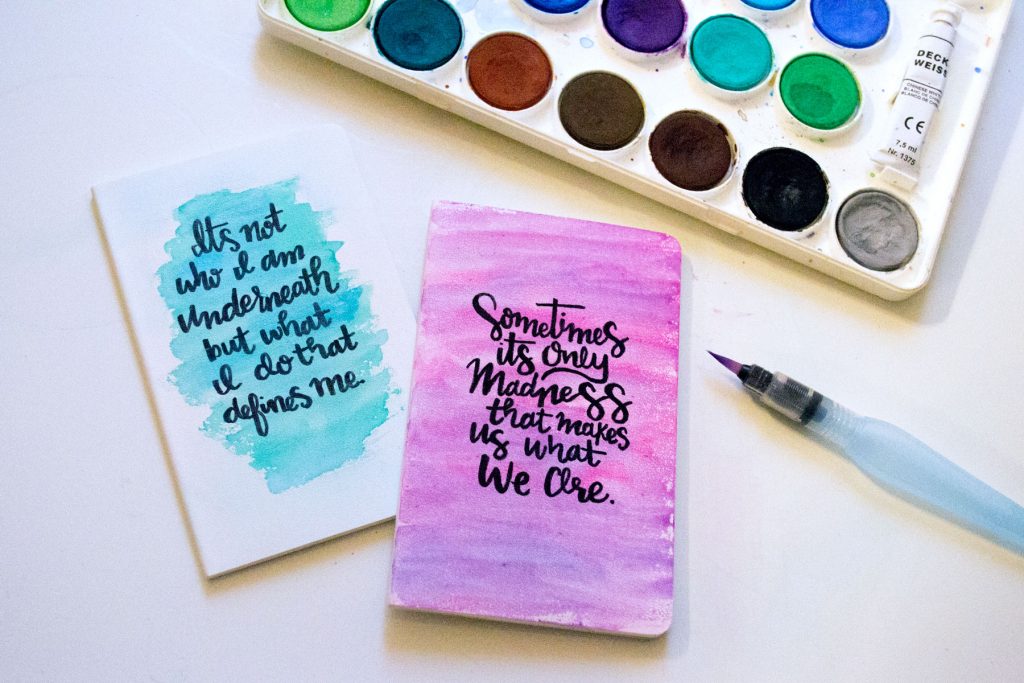 Its not
who I am
underneath
but what
I do that
defines me.
Sometimes
its Only
Madness
that makes
us what
We Are.
DECK
WEISS
CE
7,5 ml
Nr. 1375